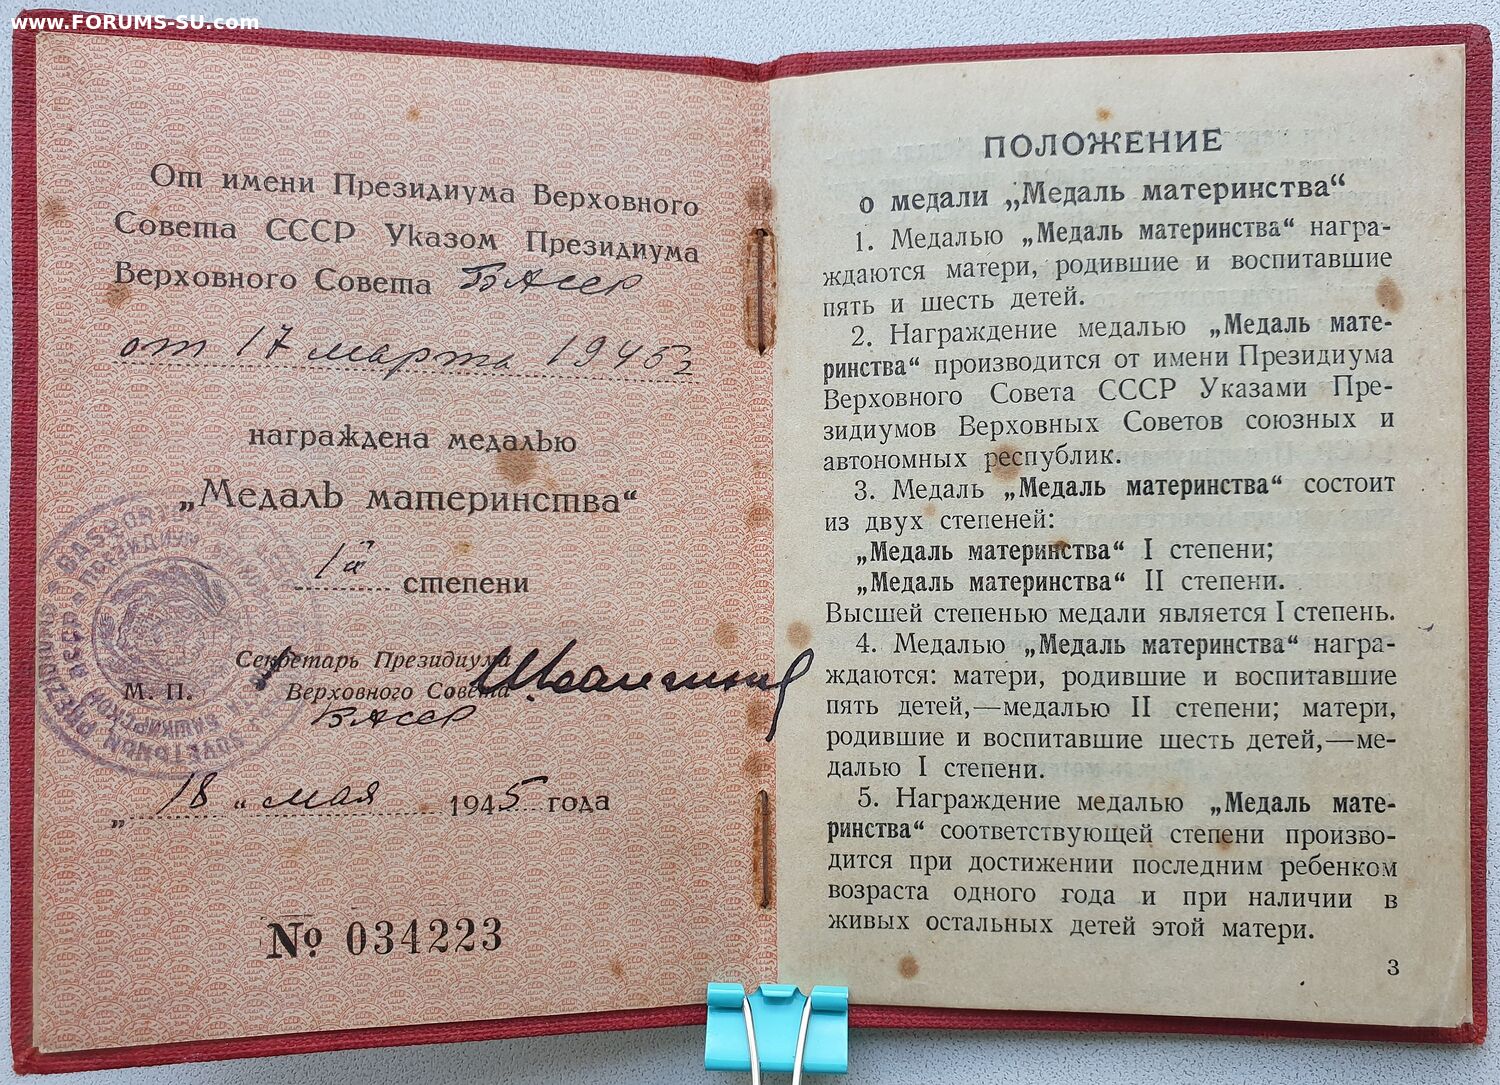 www.FORUMS-SU.com
От имени Президиума Верховного
Совета СССР Указом Президиума
Верховного Совета БАССР
от 17 марта 1945 г
награждена медалью
„Медаль материнства“
1й степени
Секретарь Президиума
М. П. Верховного Совета
БАССР
„18“ мая 1945 года
№ 034223
ПОЛОЖЕНИЕ
о медали „Медаль материнства“
1. Медалью „Медаль материнства“ награ-
ждаются матери, родившие и воспитавшие
пять и шесть детей.
2. Награждение медалью „Медаль мате-
ринства“ производится от имени Президиума
Верховного Совета СССР Указами Пре-
зидиумов Верховных Советов союзных и
автономных республик.
3. Медаль „Медаль материнства“ состоит
из двух степеней:
„Медаль материнства“ I степени;
„Медаль материнства“ II степени.
Высшей степенью медали является I степень.
4. Медалью „Медаль материнства“ награ-
ждаются: матери, родившие и воспитавшие
пять детей,—медалью II степени; матери,
родившие и воспитавшие шесть детей,—ме-
далью I степени.
5. Награждение медалью „Медаль мате-
ринства“ соответствующей степени произво-
дится при достижении последним ребенком
возраста одного года и при наличии в
живых остальных детей этой матери.
3